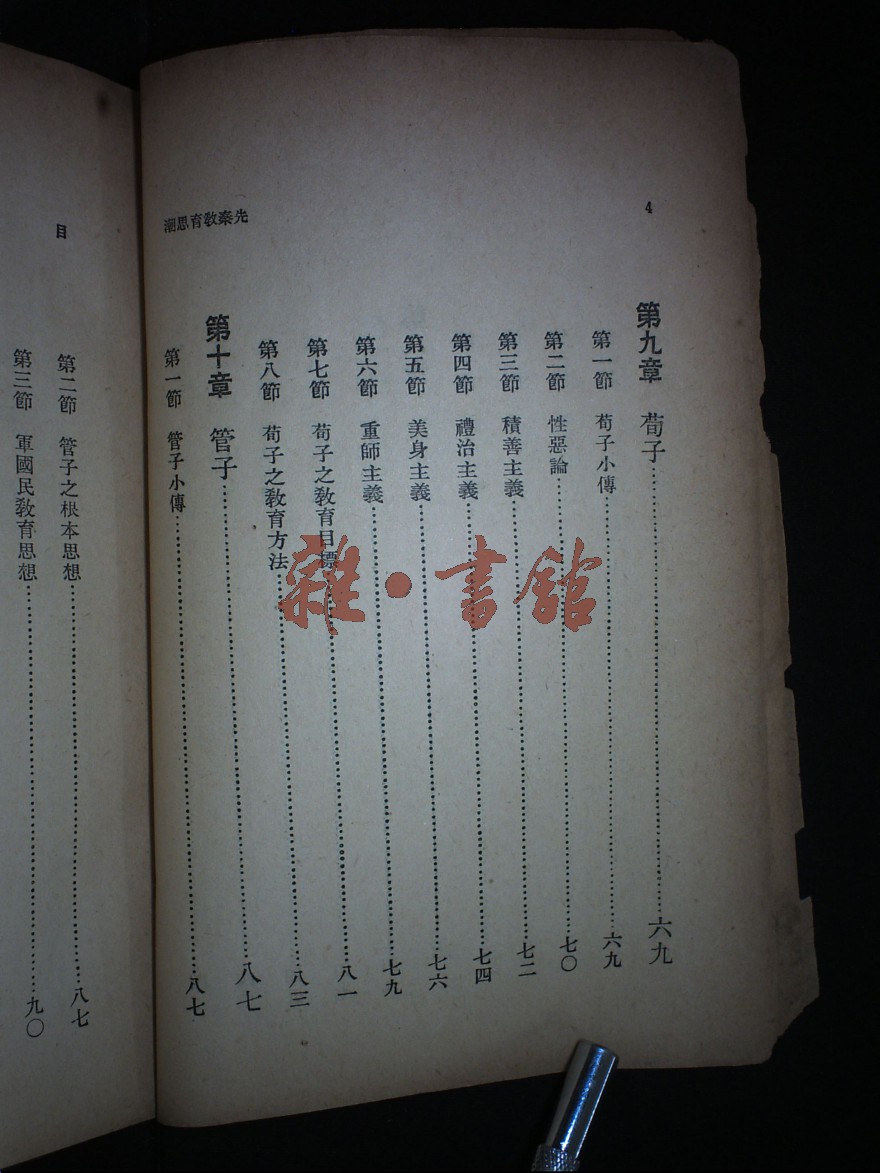 4
先秦教育思潮
第九章　荀子……六九
第一節　荀子小傳……六九
第二節　性惡論……七〇
第三節　積善主義……七二
第四節　禮治主義……七四
第五節　美身主義……七六
第六節　重師主義……七九
第七節　荀子之教育目標……八一
第八節　荀子之教育方法……八三
第十章　管子……八七
第一節　管子小傳……八七
目
第二節　管子之根本思想……八七
第三節　軍國民教育思想……九〇
雜·書館